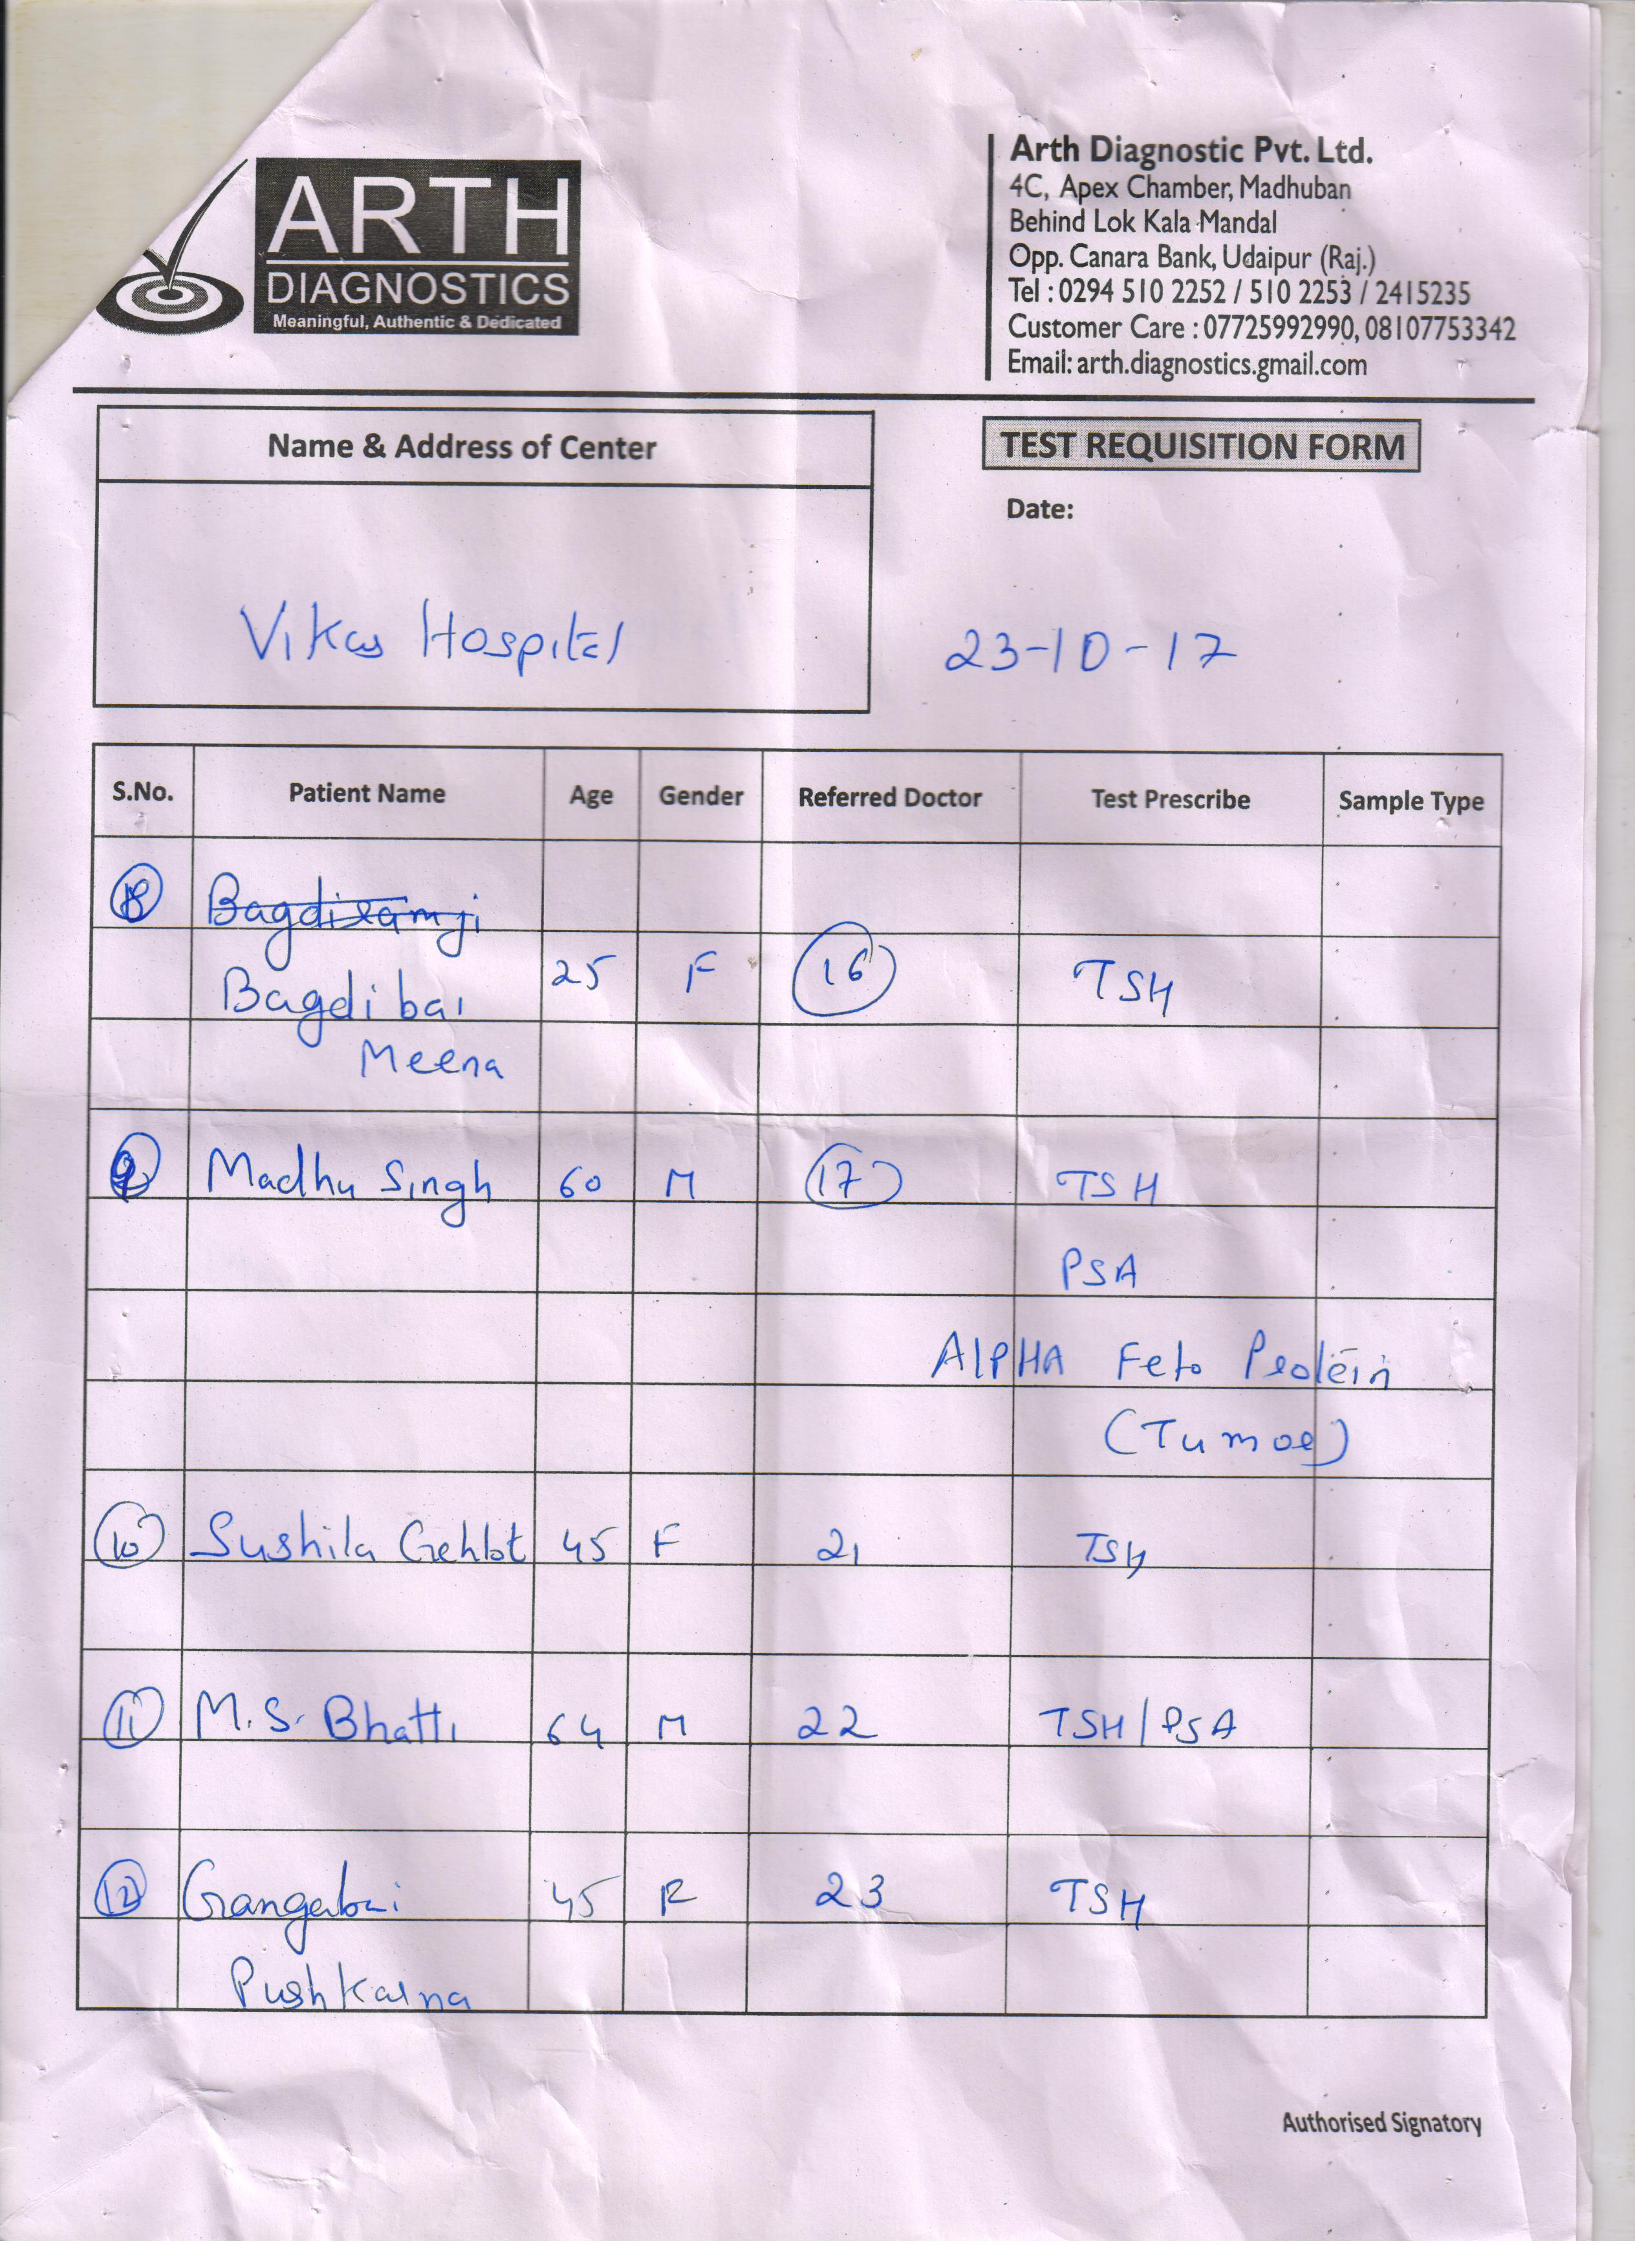 ARTH
DIAGNOSTICS
Meaningful, Authentic & Dedicated
Arth Diagnostic Pvt. Ltd.
4C, Apex Chamber, Madhuban
Behind Lok Kala Mandal
Opp. Canara Bank, Udaipur (Raj.)
Tel : 0294 510 2252 / 510 2253 / 2415235
Customer Care : 07725992990, 08107753342
Email: arth.diagnostics.gmail.com
Name & Address of Center
TEST REQUISITION FORM
Date:
Vikas Hospital
23-10-17
S.No. Patient Name Age Gender Referred Doctor Test Prescribe Sample Type
8 Bagdiramji
Bagdi bai 25 F 16 TSH
Meena
9 Madhu Singh 60 M 17 TSH
PSA
ALPHA Feto Protein
(Tumor)
10 Sushila Gehlot 45 F 21 TSH
11 M.S. Bhatti 64 M 22 TSH/PSA
12 Gangabai 45 F 23 TSH
Pushkarna
Authorised Signatory